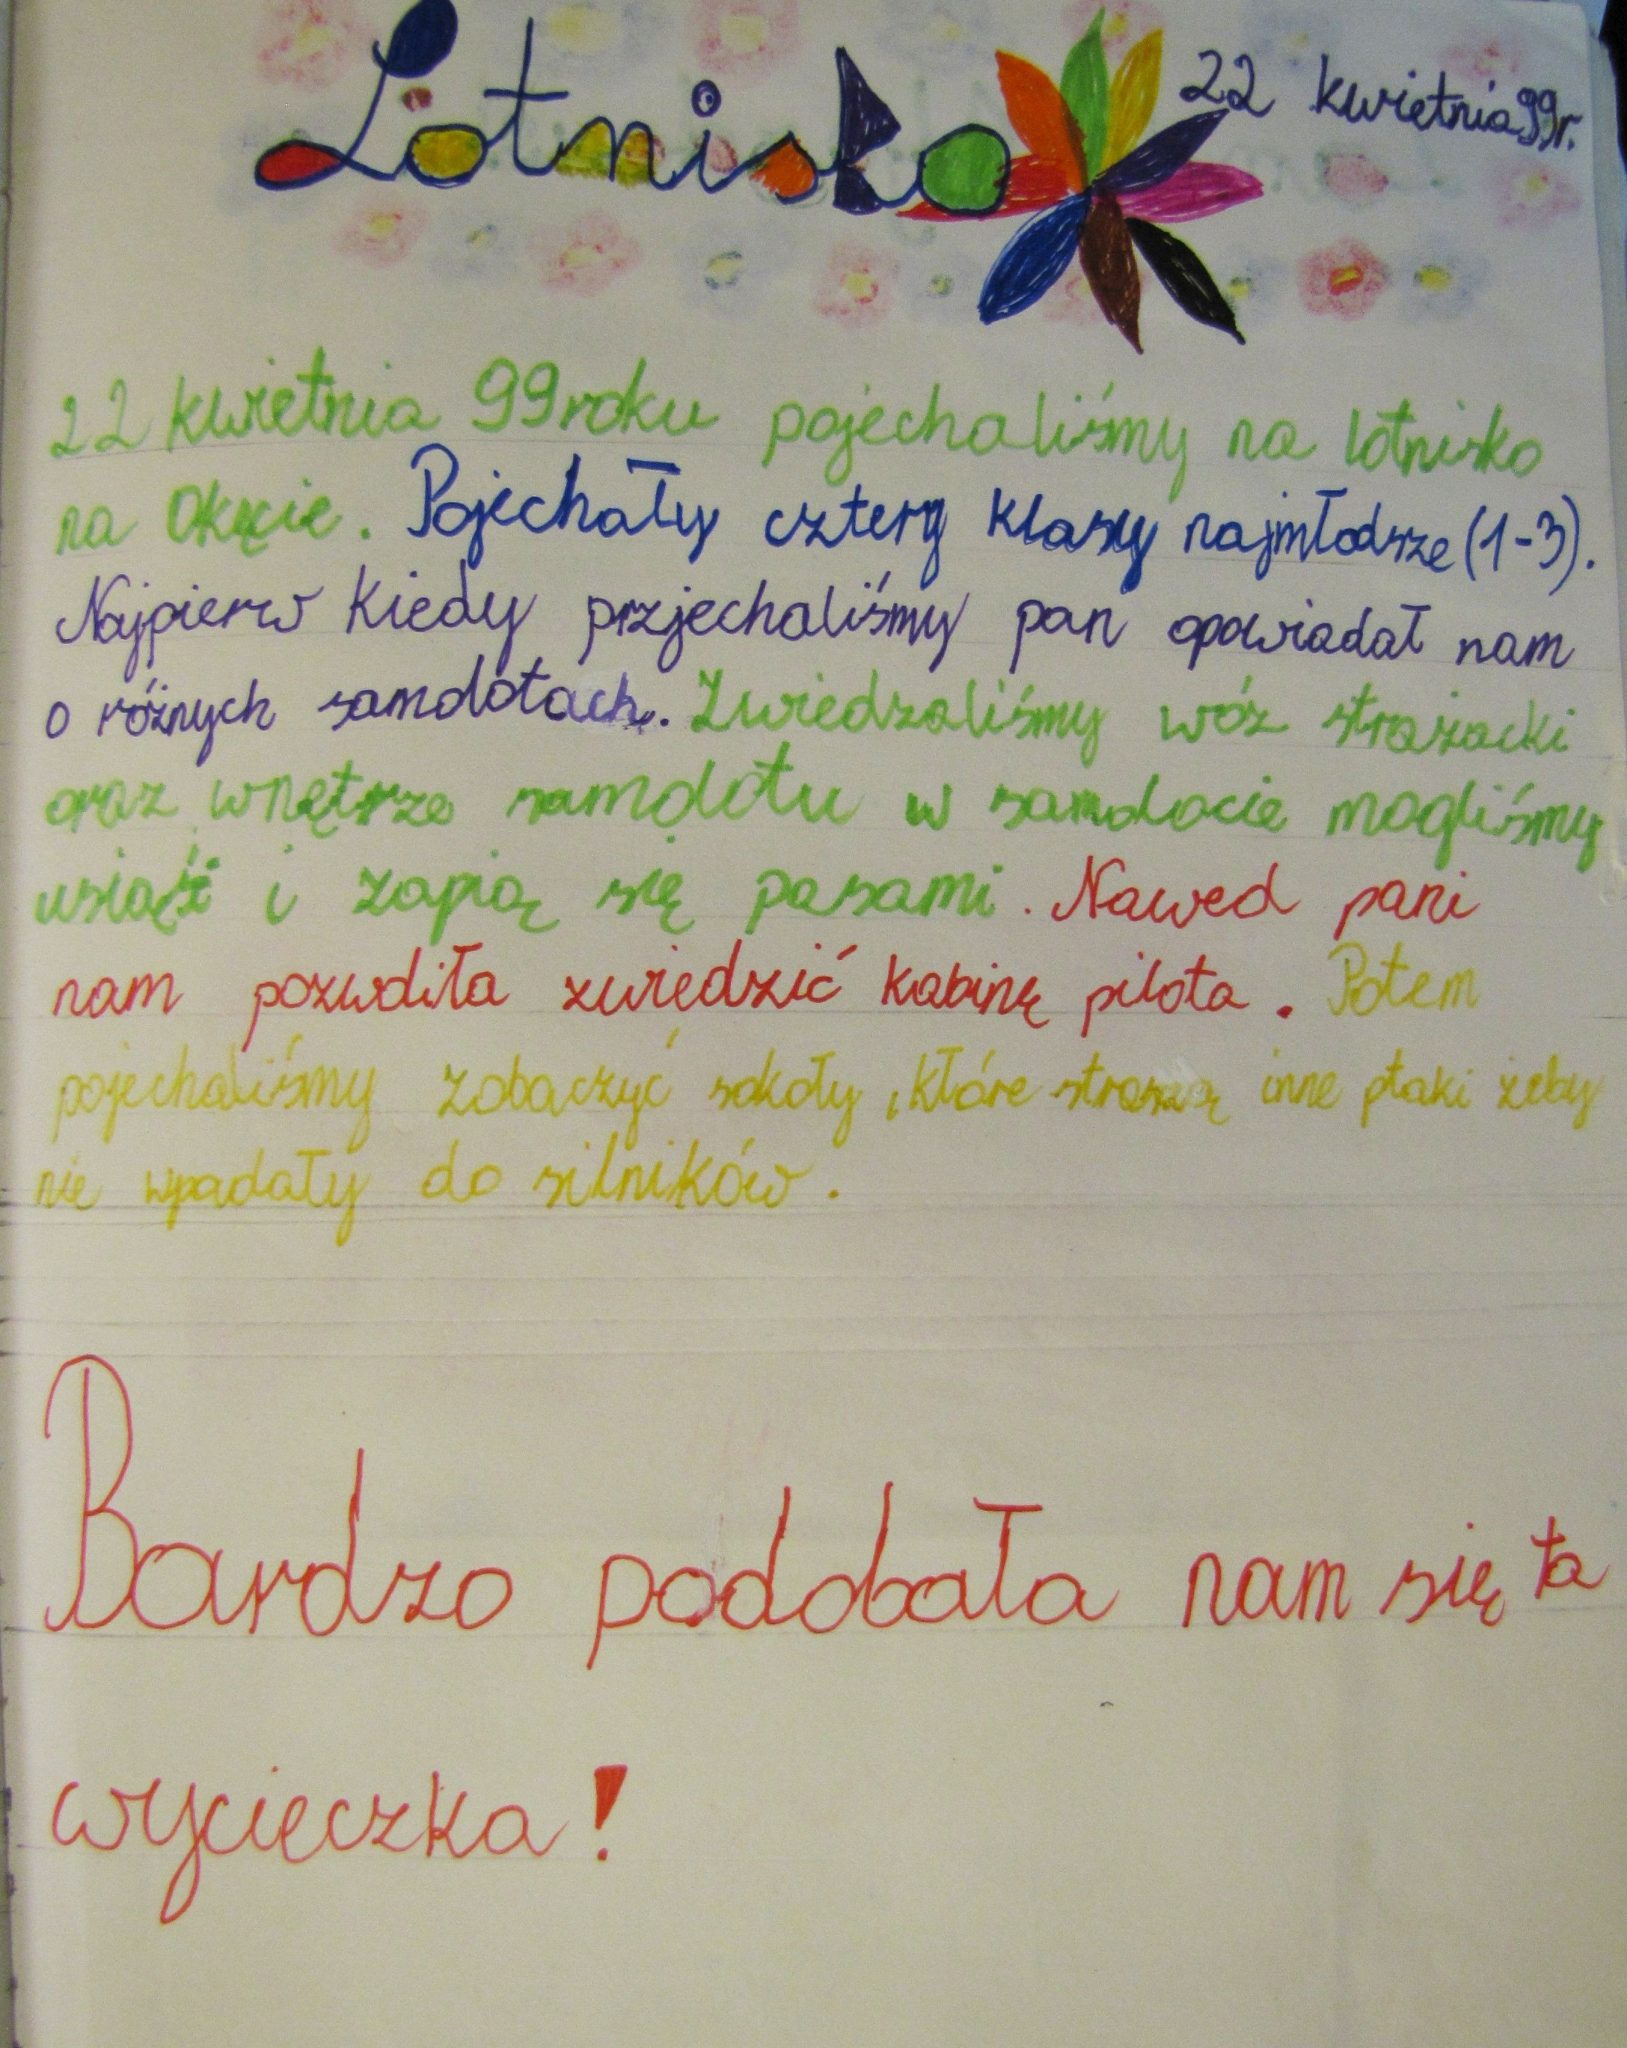 Lotnisko
22 kwietnia 99r.
22 kwietnia 99 roku pojechaliśmy na lotnisko
na Okęcie. Pojechały cztery klasy najmłodsze (1-3).
Najpierw kiedy przjechaliśmy pan opowiadał nam
o różnych samolotach. Zwiedzaliśmy wóz strażacki
oraz wnętrze samolotu w samolocie mogliśmy
usiąść i zapią się pasami. Nawed pani
nam pozwoliła zwiedzić kabinę pilota. Potem
pojechaliśmy zobaczyć sokoły, które straszą inne ptaki żeby
nie wpadały do silników.
Bardzo podobała nam się ta
wycieczka!